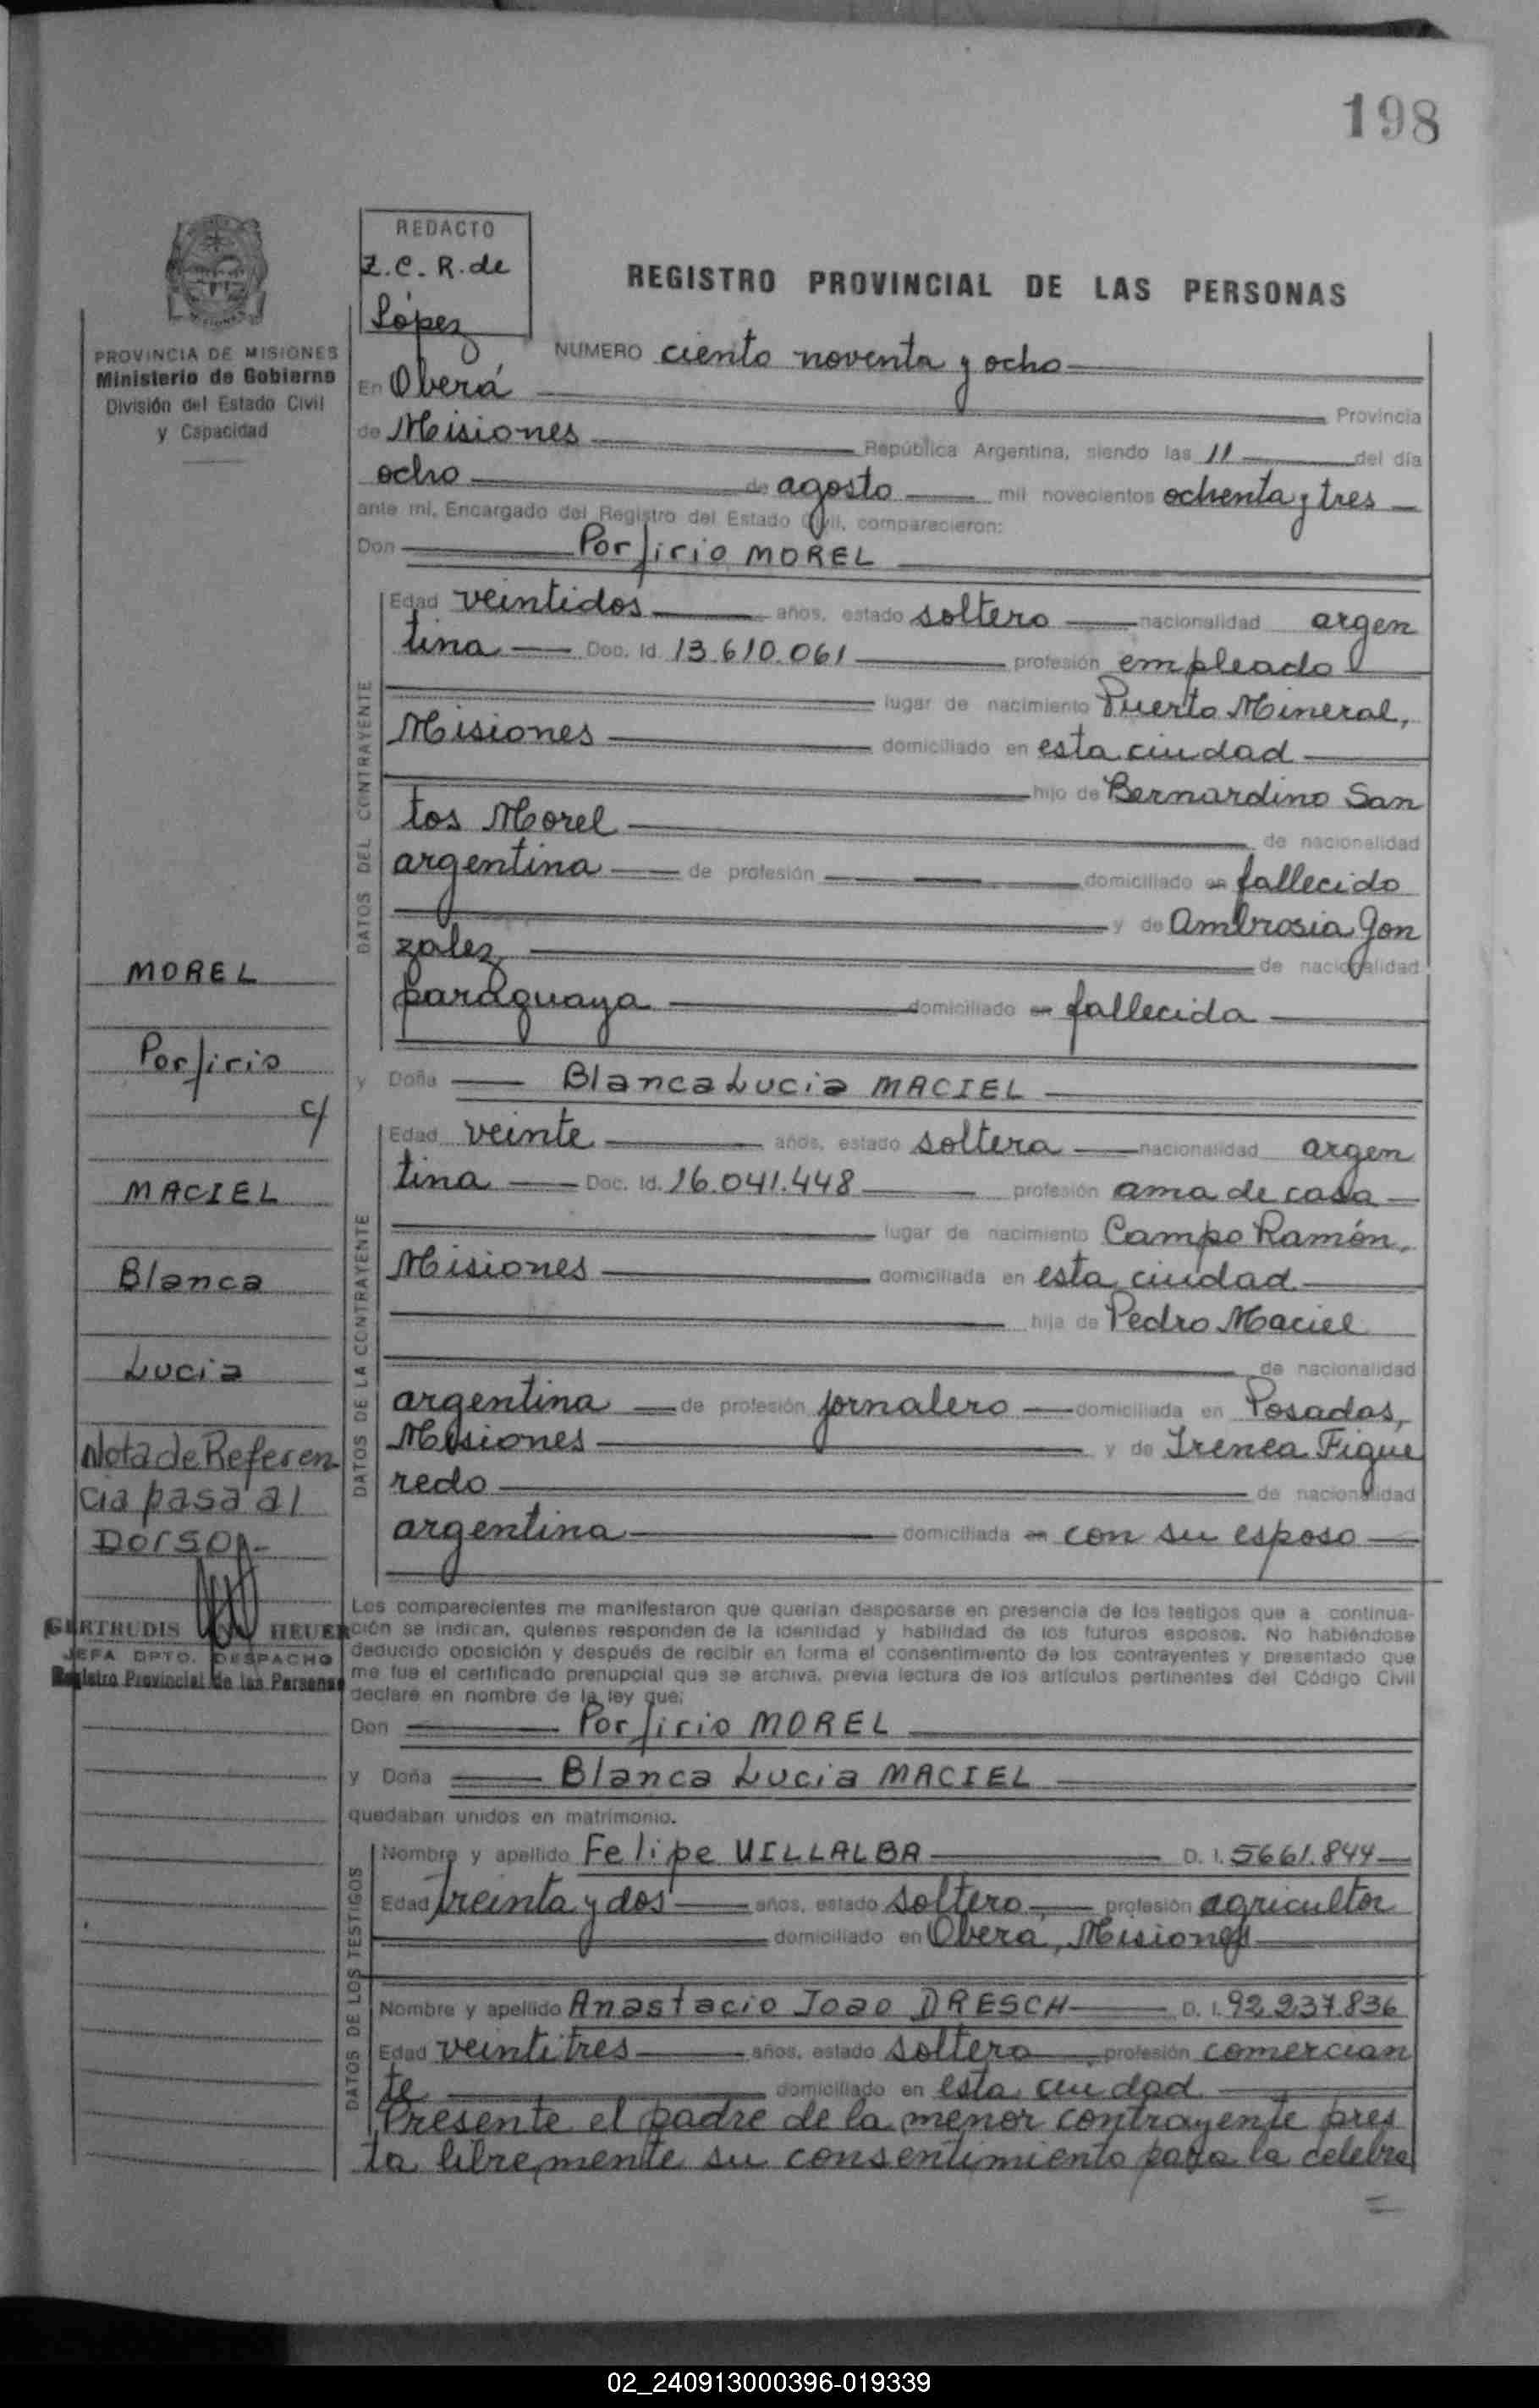 198
REDACTO
Z.C.R. de
López
REGISTRO PROVINCIAL DE LAS PERSONAS
PROVINCIA DE MISIONES
Ministerio de Gobierno
División del Estado Civil
y Capacidad
NUMERO ciento noventa y ocho
En Oberá Provincia
de Misiones República Argentina, siendo las 11 del día
ocho de agosto mil novecientos ochenta y tres
ante mi, Encargado del Registro del Estado Civil, comparecieron:
Don Porfirio MOREL
DATOS DEL CONTRAYENTE
Edad veintidós años, estado soltero nacionalidad argen
tina Doc. Id. 13.610.061 profesión empleado
lugar de nacimiento Puerto Mineral,
Misiones domiciliado en esta ciudad
hijo de Bernardino San
tos Morel de nacionalidad
argentina de profesión domiciliado en fallecido
y de Ambrosia Gon
zalez de nacionalidad
paraguaya domiciliado en fallecida
y Doña Blanca Lucia MACIEL
DATOS DE LA CONTRAYENTE
Edad veinte años, estado soltera nacionalidad argen
tina Doc. Id. 16.041.448 profesión ama de casa
lugar de nacimiento Campo Ramón,
Misiones domiciliada en esta ciudad
hija de Pedro Maciel
de nacionalidad
argentina de profesión jornalero domiciliada en Posadas,
Misiones y de Irenea Figue
redo de nacionalidad
argentina domiciliada en con su esposo
MOREL
Porfirio
c/
MACIEL
Blanca
Lucia
Nota de Referen
cia pasa al
Dorso.-
GERTRUDIS HEUER
JEFA DPTO. DESPACHO
Registro Provincial de las Personas
Los comparecientes me manifestaron que querían desposarse en presencia de los testigos que a continua-
ción se indican, quienes responden de la identidad y habilidad de los futuros esposos. No habiéndose
deducido oposición y después de recibir en forma el consentimiento de los contrayentes y presentado que
me fue el certificado prenupcial que se archiva, previa lectura de los artículos pertinentes del Código Civil
declaré en nombre de la ley que:
Don Porfirio MOREL
y Doña Blanca Lucia MACIEL
quedaban unidos en matrimonio.
DATOS DE LOS TESTIGOS
Nombre y apellido Felipe VILLALBA D. I. 5661.844
Edad treinta y dos años, estado soltero profesión agricultor
domiciliado en Oberá, Misiones
Nombre y apellido Anastacio Joao DRESCH D. I. 92.237.836
Edad veintitres años, estado soltero profesión comercian
te domiciliado en esta ciudad
Presente el padre de la menor contrayente pres
ta libremente su consentimiento para la celebra
=
02_240913000396-019339